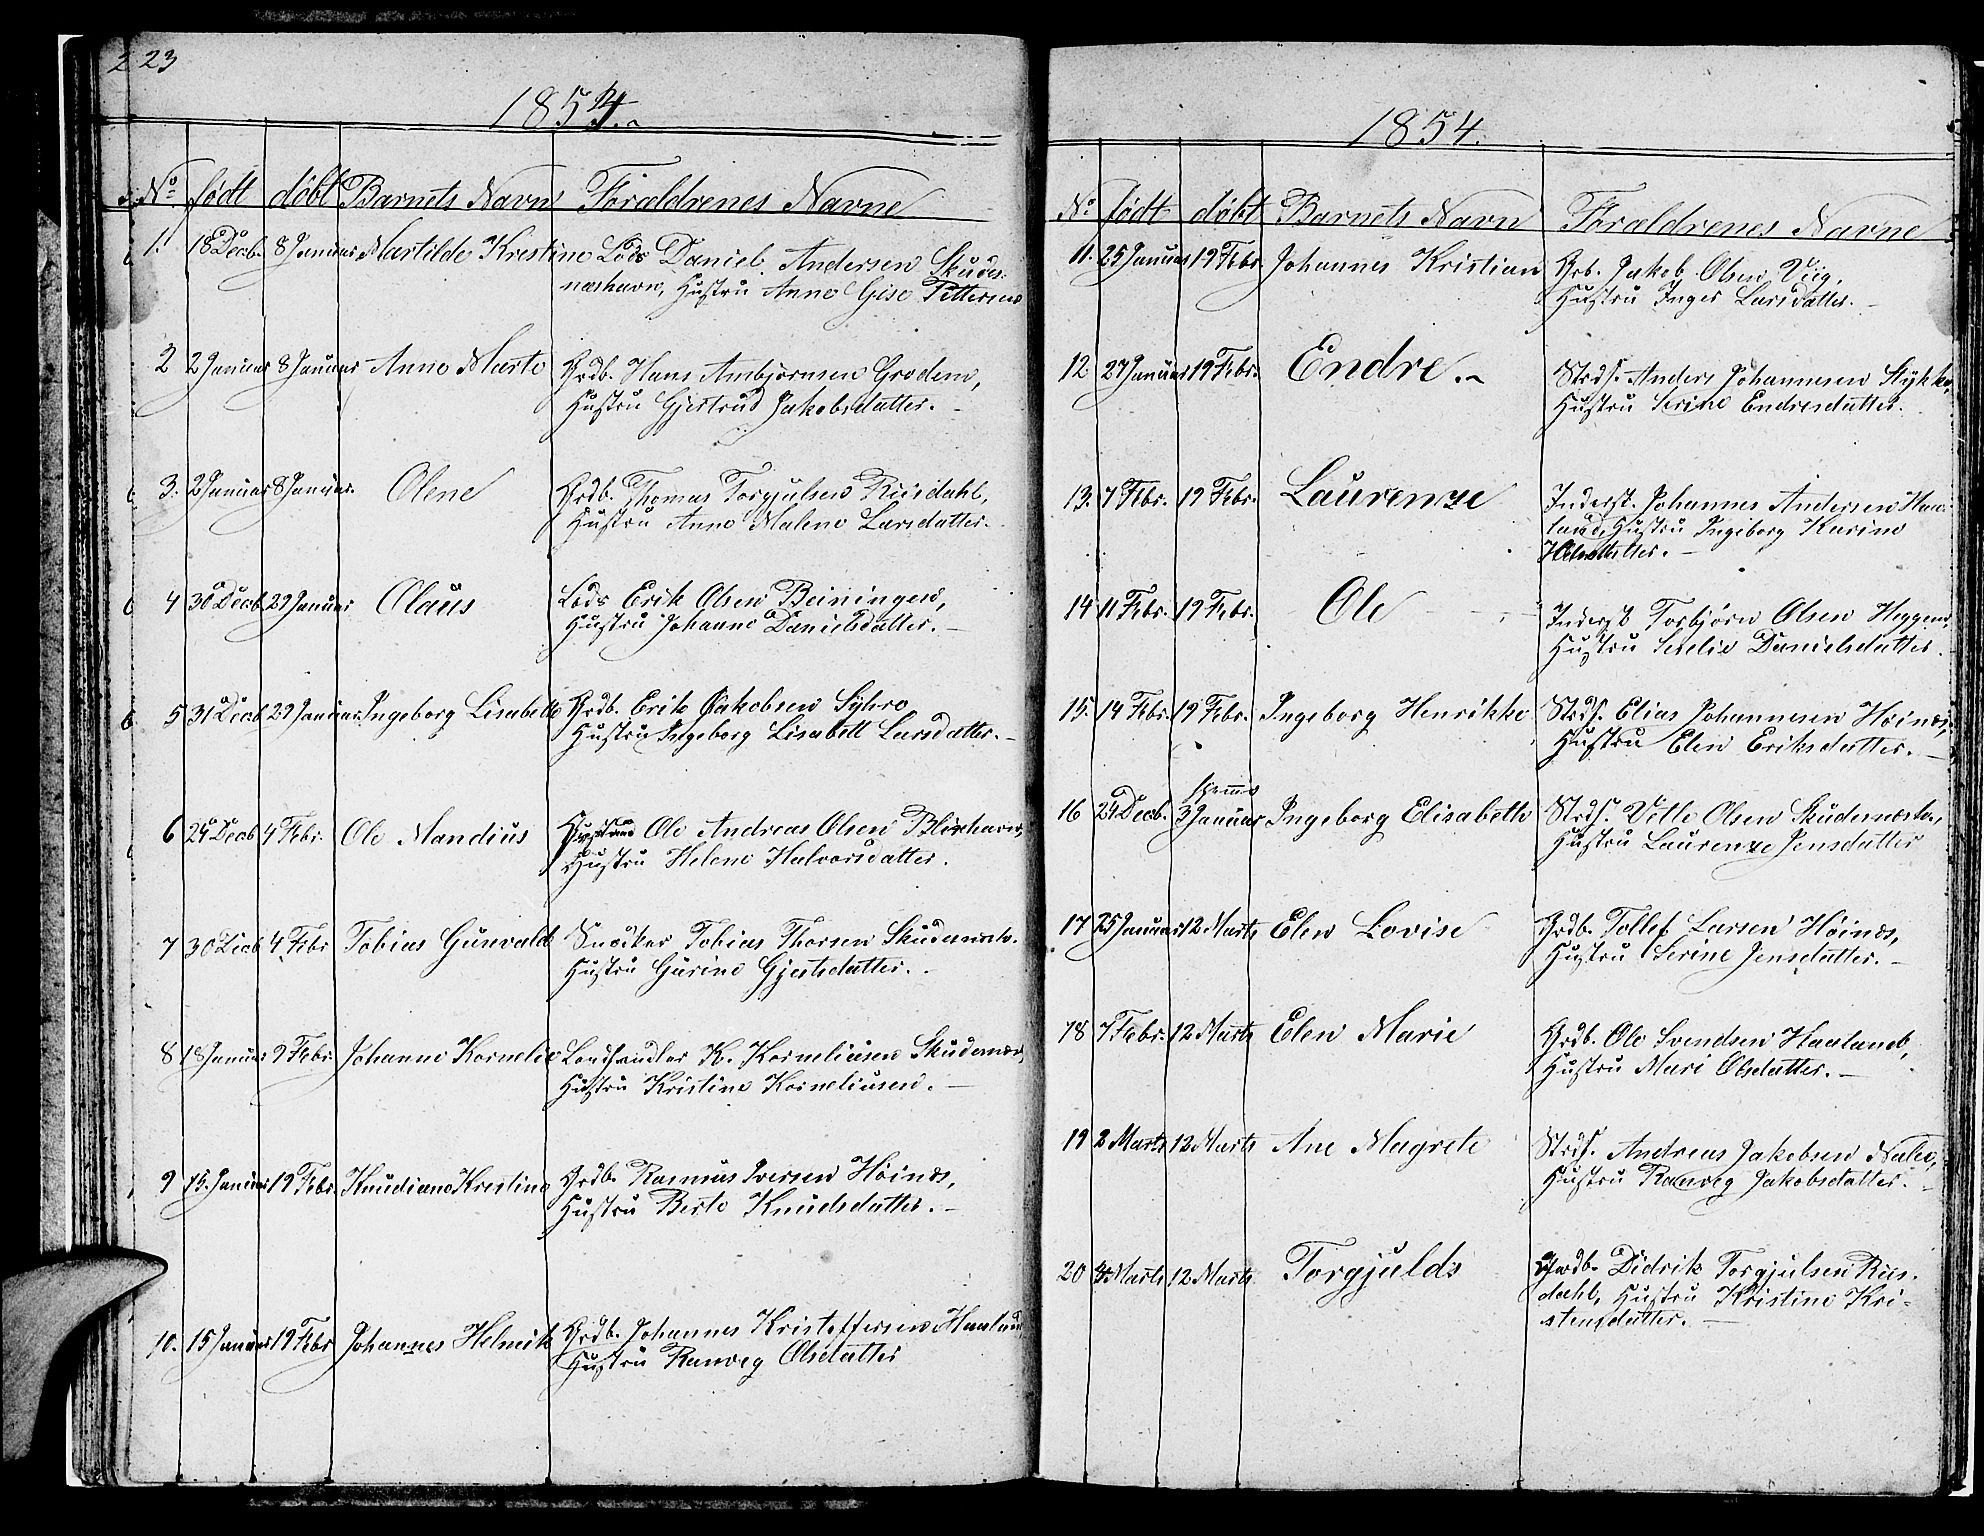 23
1854.
No født døbt Barnets Navn Forældrenes Navne
1. 18 Decb. 8 Januar Martilde Krestine Lods Daniel Andersen Skudes-
neshavn, Hustru Anne Gise Pettersen
2 2 Januar 8 Januar Anne Marte Grdb. Hans Ambjørnsen Grodem,
Hustru Gjertrud Jakobsdatter.
3. 2 Januar 8 Januar. Olene Grdb. Thomas Torgjulsen Riisdahl,
Hustru Anne Malene Larsdatter.
4 30 Decb. 29 Januar Olaus Lods Erik Olsen Beiningen,
Hustru Johanne Danielsdatter.
5 31 Decb 29 Januar. Ingeborg Lisabette Grdb. Erik Jakobsen Syvro
Hustru Ingeborg Lisabett Larsdatter.
6 24 Decb 4 Febr. Ole Mandius Ole Andreas Olsen
Hustru Helene Halvorsdatter.
7 30 Decb 4 Febr Tobias Gunvald Snedker Tobias Thorsen Skudenesh.
Hustru Gurine Gjertsdatter.
8 18 Januar 9 Febr. Johanne Kornelie Landhandler K. Korneliusen Skudenes,
Hustru Kristine Korneliusen.
9 15. Januar 19 Febr. Knudiane Krestine Grdb. Rasmus Iversen Høines,
Hustru Berte Knudsdatter.
10. 15 Januar 19 Febr Johannes Helmik Grdb. Johannes Kristoffersen Haaland
Hustru Ranveg Olsdatter
1854.
No født døbt Barnets Navn Forældrenes Navne
11. 25 Januar 19 Febr. Johannes Kristian Grb. Jakob Olsen Viig,
Hustru Inger Larsdatter.
12. 27 Januar 19 Febr. Endre. Strds. Anders Johannesen Stykke,
Hustru Serine Endresdatter.
13. 7 Febr. 19 Febr. Laurenze Inderst. Johannes Andersen Haa-
land, Hustru Ingeborg Karine
14 11 Febr. 19 Febr. Ole Inderst Torbjørn Olsen Heggem,
Hustru Serelie Danielsdatter.
15. 14 Febr. 19 Febr. Ingeborg Henrikke Strds. Elias Johannesen Høines,
Hustru Elen Eriksdatter.
hjemme
16 24 Decb. 3 Januar Ingeborg Elisabeth Strds. Vitle Olsen Skudenes,
Hustru Laurenze Jensdatter
17 25 Januar 12 Marts Elen Lovise Grdb. Tollef Larsen Høines,
Hustru Serine Jensdatter.
18 7 Febr. 12 Marts Elen Marie Grdb. Ole Svendsen Haaland,
Hustru Mari Olsdatter.
19 2 Marts 12 Marts Ane Magrete Strds. Andreas Jakobsen Nalen,
Hustru Ranveg Jakobsdatter.
20 4 Marts 12 Marts Torgjulds Grdb. Didrik Torgjulsen Riis-
dahl, Hustru Kristine Kri-
stensdatter.